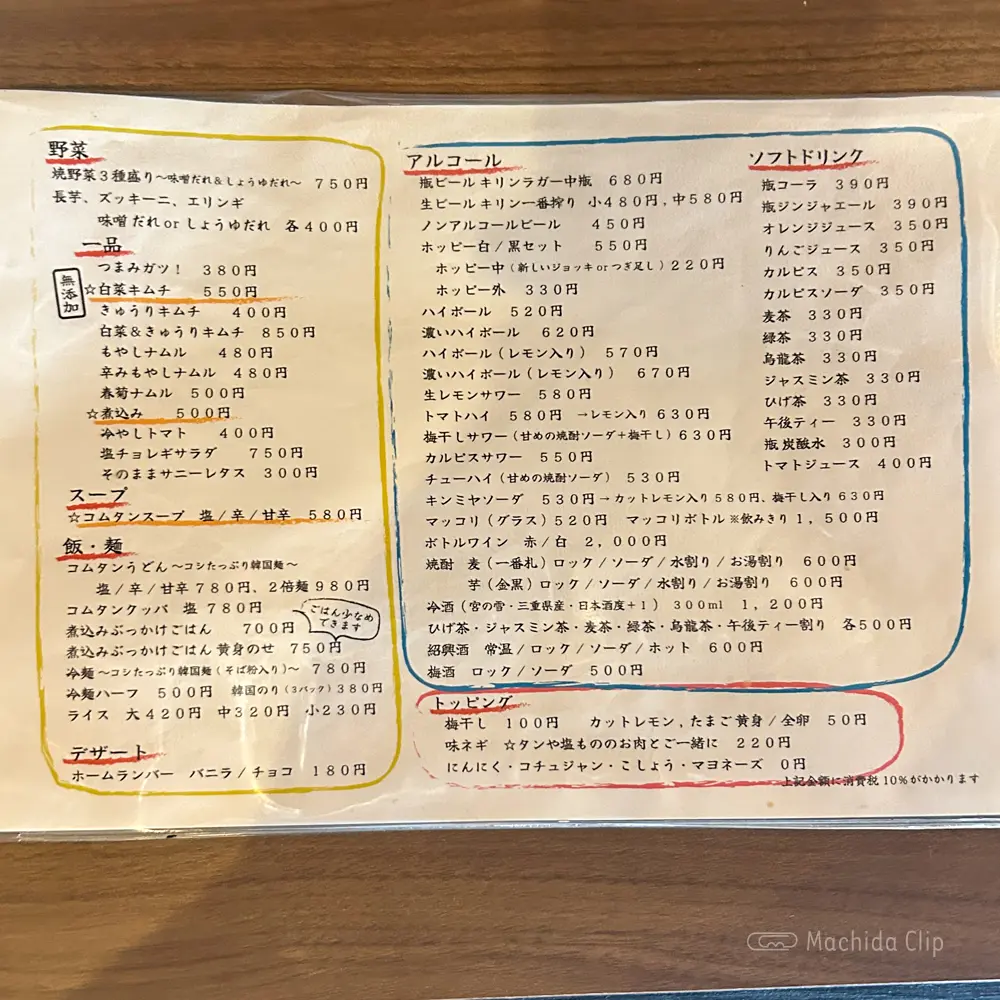 野菜
焼野菜3種盛り〜味噌だれ&しょうゆだれ〜 750円
長芋、ズッキーニ、エリンギ
味噌だれorしょうゆだれ 各400円
一品
つまみガツ! 380円
無添加
☆白菜キムチ 550円
きゅうりキムチ 400円
白菜&きゅうりキムチ 850円
もやしナムル 480円
辛みもやしナムル 480円
春菊ナムル 500円
☆煮込み 500円
冷やしトマト 400円
塩チョレギサラダ 750円
そのままサニーレタス 300円
スープ
☆コムタンスープ 塩/辛/甘辛 580円
飯・麺
コムタンうどん〜コシたっぷり韓国麺〜
塩/辛/甘辛780円、2倍麺980円
コムタンクッパ 塩780円
ごはん少なめ
できます
煮込みぶっかけごはん 700円
煮込みぶっかけごはん黄身のせ 750円
冷麺〜コシたっぷり韓国麺(そば粉入り)〜 780円
冷麺ハーフ 500円 韓国のり(3パック)380円
ライス 大420円 中320円 小230円
デザート
ホームランバー バニラ/チョコ 180円
アルコール
瓶ビール キリンラガー中瓶 680円
生ビール キリン一番搾り 小480円,中580円
ノンアルコールビール 450円
ホッピー白/黒セット 550円
ホッピー中(新しいジョッキorつぎ足し)220円
ホッピー外 330円
ハイボール 520円
濃いハイボール 620円
ハイボール(レモン入り) 570円
濃いハイボール(レモン入り) 670円
生レモンサワー 580円
トマトハイ 580円 →レモン入り630円
梅干しサワー(甘めの焼酎ソーダ+梅干し)630円
カルピスサワー 550円
チューハイ(甘めの焼酎ソーダ) 530円
キンミヤソーダ 530円→カットレモン入り580円、梅干し入り630円
マッコリ(グラス)520円 マッコリボトル※飲みきり1,500円
ボトルワイン 赤/白 2,000円
焼酎 麦(一番札)ロック/ソーダ/水割り/お湯割り 600円
芋(金黒)ロック/ソーダ/水割り/お湯割り 600円
冷酒(宮の雪・三重県産・日本酒度+1) 300ml 1,200円
ひげ茶・ジャスミン茶・麦茶・緑茶・烏龍茶・午後ティー割り 各500円
紹興酒 常温/ロック/ソーダ/ホット 600円
梅酒 ロック/ソーダ 500円
ソフトドリンク
瓶コーラ 390円
瓶ジンジャエール 390円
オレンジジュース 350円
りんごジュース 350円
カルピス 350円
カルピスソーダ 350円
麦茶 330円
緑茶 330円
烏龍茶 330円
ジャスミン茶 330円
ひげ茶 330円
午後ティー 330円
瓶炭酸水 300円
トマトジュース 400円
トッピング
梅干し 100円 カットレモン,たまご黄身/全卵 50円
味ネギ ☆タンや塩もののお肉とご一緒に 220円
にんにく・コチュジャン・こしょう・マヨネーズ 0円
上記金額に消費税10%がかかります
Machida Clip